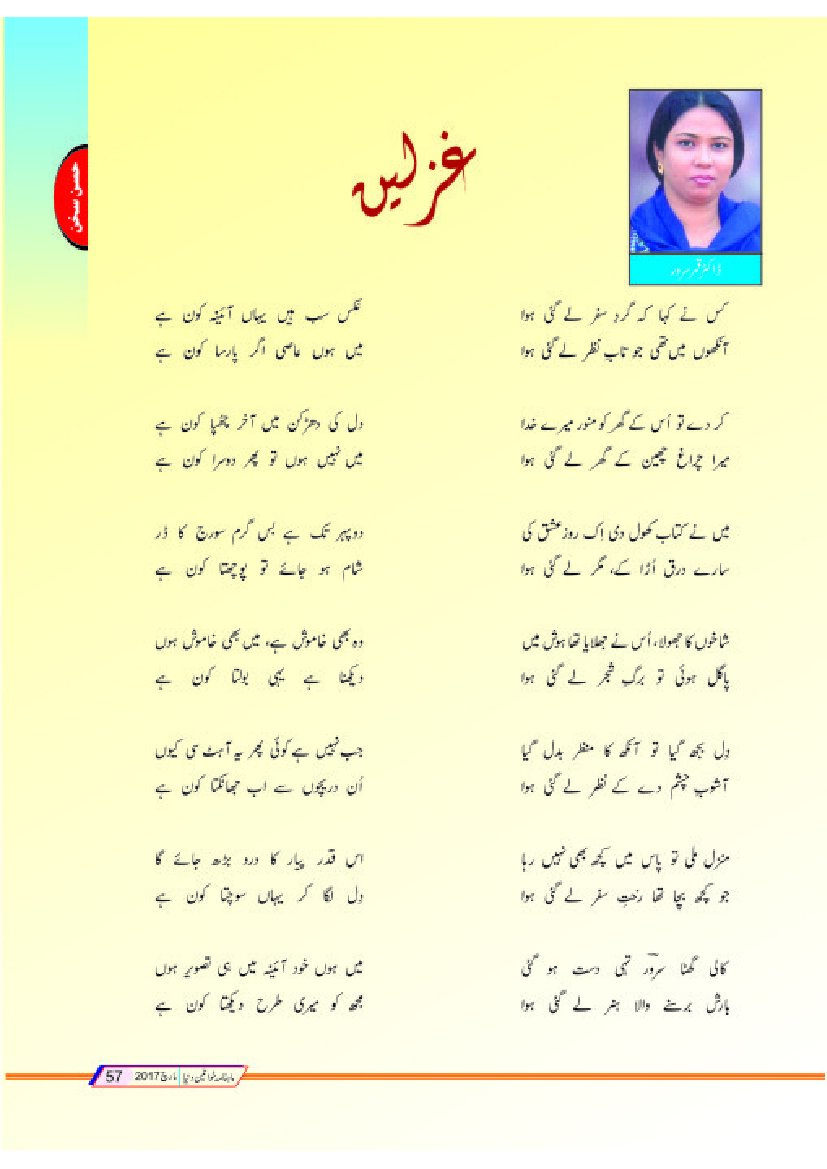 حسن سخن
غزلیں
ڈاکٹر قمر سرور
کس نے کہا کہ گردِ سفر لے گئی ہوا
آنکھوں میں تھی جو تابِ نظر لے گئی ہوا
کر دے تو اُس کے گھر کو منور میرے خدا
میرا چراغ چھین کے گھر لے گئی ہوا
میں نے کتاب کھول دی اِک روز عشق کی
سارے ورق اُڑا کے، مگر لے گئی ہوا
شاخوں کا جھولا، اُس نے جھلایا تھا ہوش میں
پاگل ہوئی تو برگِ شجر لے گئی ہوا
دِل بجھ گیا تو آنکھ کا منظر بدل گیا
آشوبِ چشم دے کے نظر لے گئی ہوا
منزل ملی تو پاس میں کچھ بھی نہیں رہا
جو کچھ بچا تھا رختِ سفر لے گئی ہوا
کالی گھٹا سرور تہی دست ہو گئی
بارش برسنے والا ہنر لے گئی ہوا
عکس سب ہیں یہاں آئینہ کون ہے
میں ہوں عاصی اگر پارسا کون ہے
دِل کی دھڑکن میں آخر چھپا کون ہے
میں نہیں ہوں تو پھر دوسرا کون ہے
دوپہر تک ہے بس گرم سورج کا ڈر
شام ہو جائے تو پوچھتا کون ہے
وہ بھی خاموش ہے، میں بھی خاموش ہوں
دیکھنا ہے یہی بولتا کون ہے
جب نہیں ہے کوئی پھر یہ آہٹ سی کیوں
اُن دریچوں سے اب جھانکتا کون ہے
اس قدر پیار کا درد بڑھ جائے گا
دِل لگا کر یہاں سوچتا کون ہے
میں ہوں خود آئینہ میں ہی تصویر ہوں
مجھ کو میری طرح دیکھتا کون ہے
ماہنامہ خواتین دنیا مارچ 2017 57